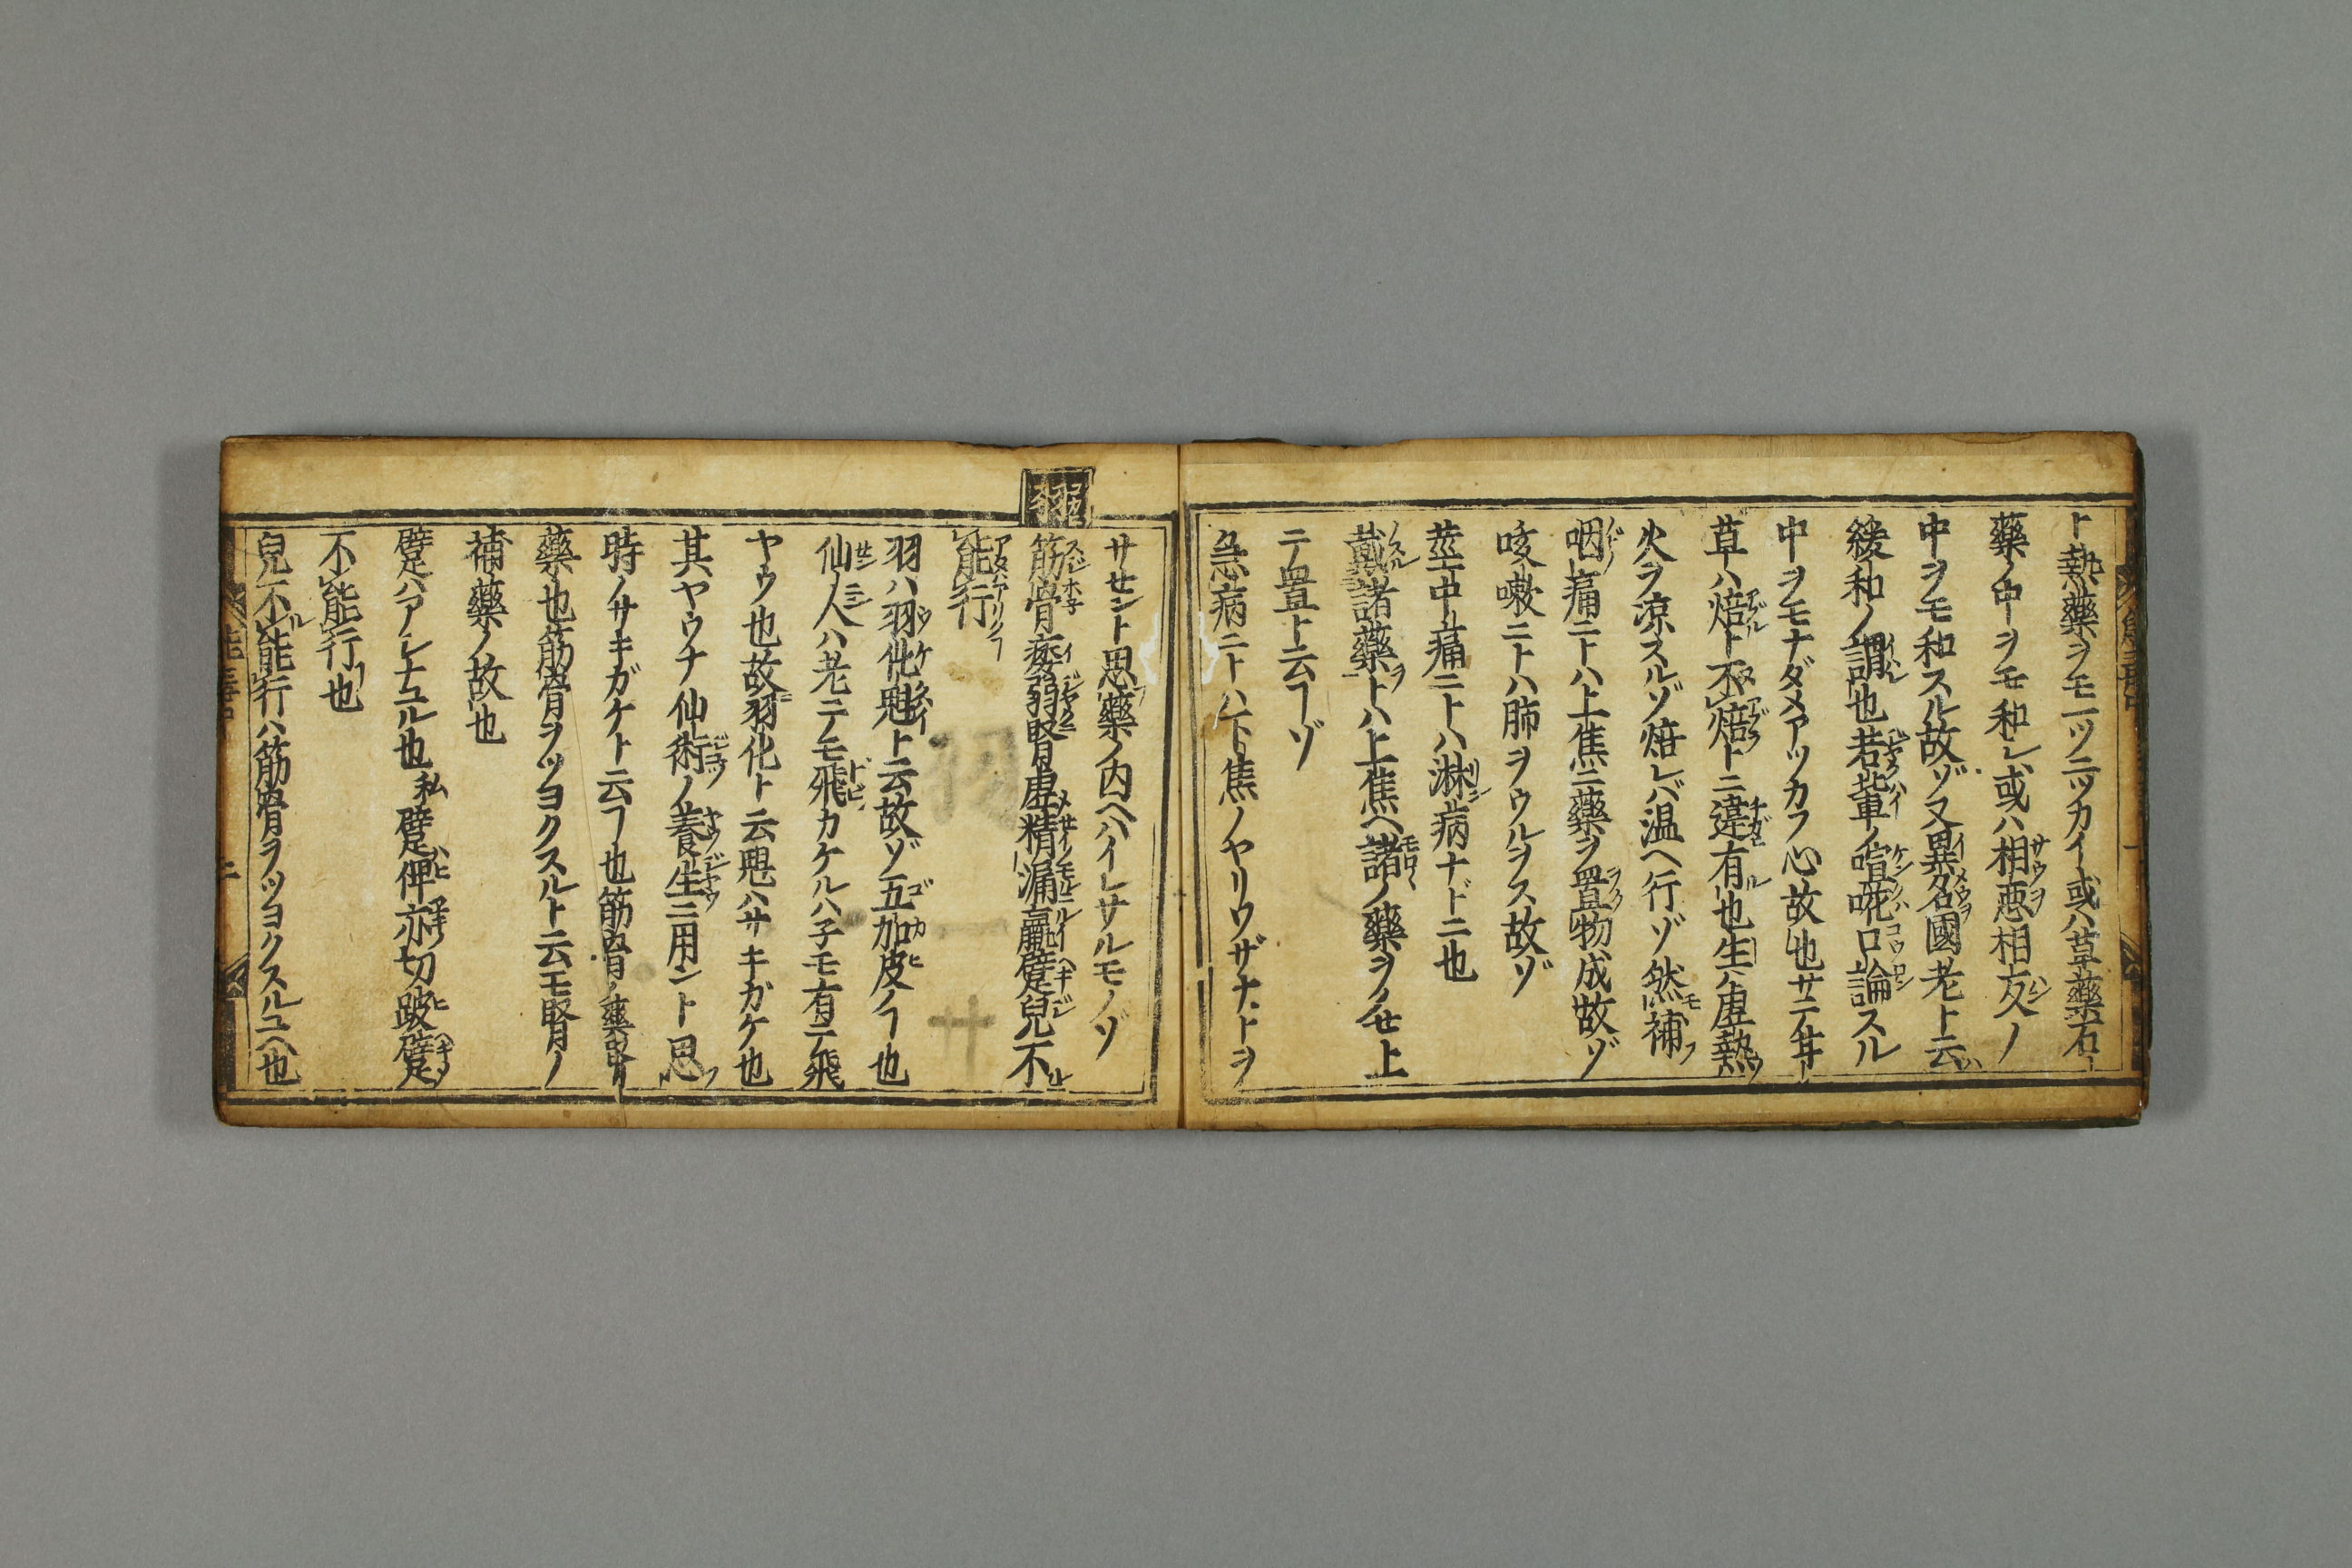 ト熱藥ヲモ一ツニツカイ或ハ草藥石
藥ノ中ヲモ和シ或ハ相悪相反ノ
中ヲモ和スル故ゾ又異名國老ト云ハ
緩和ノ謂也若輩ノ喧𠵅口論スル
中ヲモナダメアツカフ心故也サテ甘
草ハ焙ト不焙トニ違有也生ハ虚熱
火ヲ凉スルゾ焙レバ温ヘ行ゾ然補
咽痛ニトハ上焦ニ藥ヲ置物成故ゾ
咳嗽ニトハ肺ヲウルヲス故ゾ
莖中痛ニトハ淋病ナドニ也
戴諸藥トハ上焦ヘ諸ノ藥ヲノせ上
テ置ト云フゾ
急病ニトハ下焦ノヤリワザナトヲ
サせント思藥ノ内ヘハイレサルモノゾ
筋骨痿弱腎虚精漏羸躄兒不
能行
羽ハ羽化魁ト云故ゾ五加皮ノフ也
仙人ハ老テモ飛カケルハ子モ有テ飛
ヤウ也故羽化ト云魁ハサキガケ也
其ヤウナ仙術ノ養生ニ用ント思
時ノサキガケト云フ也筋骨ノ藥腎
藥也筋骨ヲツヨクスルト云モ腎ノ
補藥ノ故也
躄ハアレナユル也私躄俾亦切跛躄
不能行也
兒不能行ハ筋骨ヲツヨクスルユヘ也